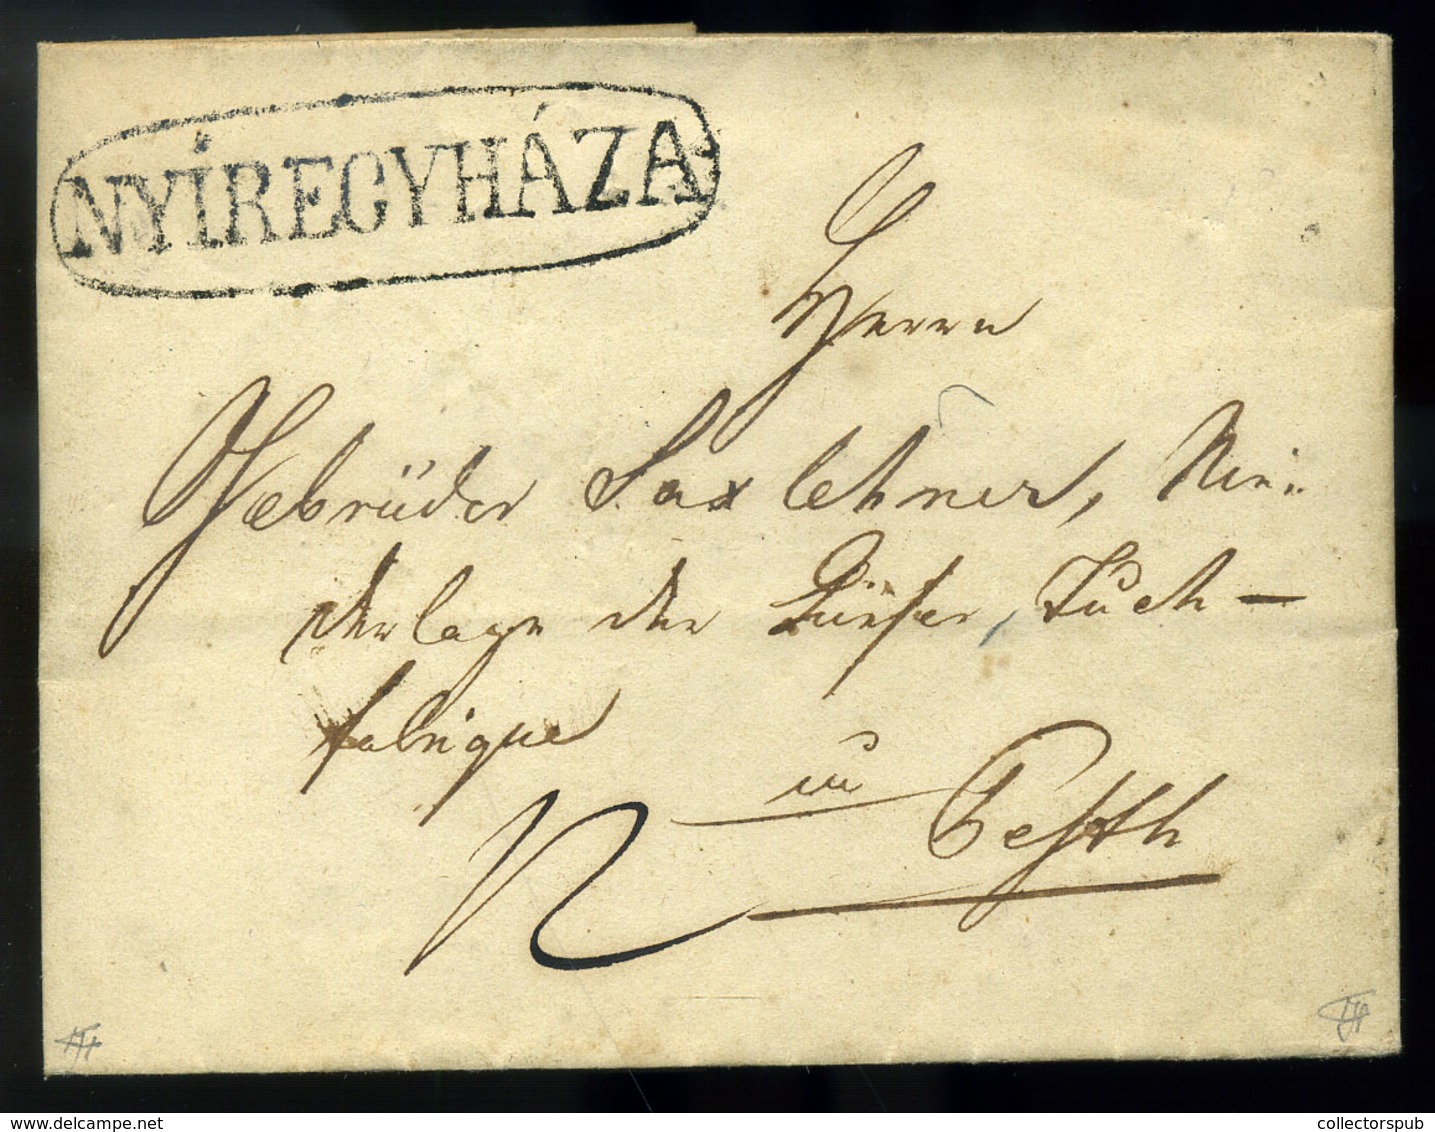 NYÍREGYHÁZA
Herrn
Gebrüder Saxlehner, Nie-
derlage der Günser Tuch-
fabrique
in Pesth
www.delcampe.net
collectorspub